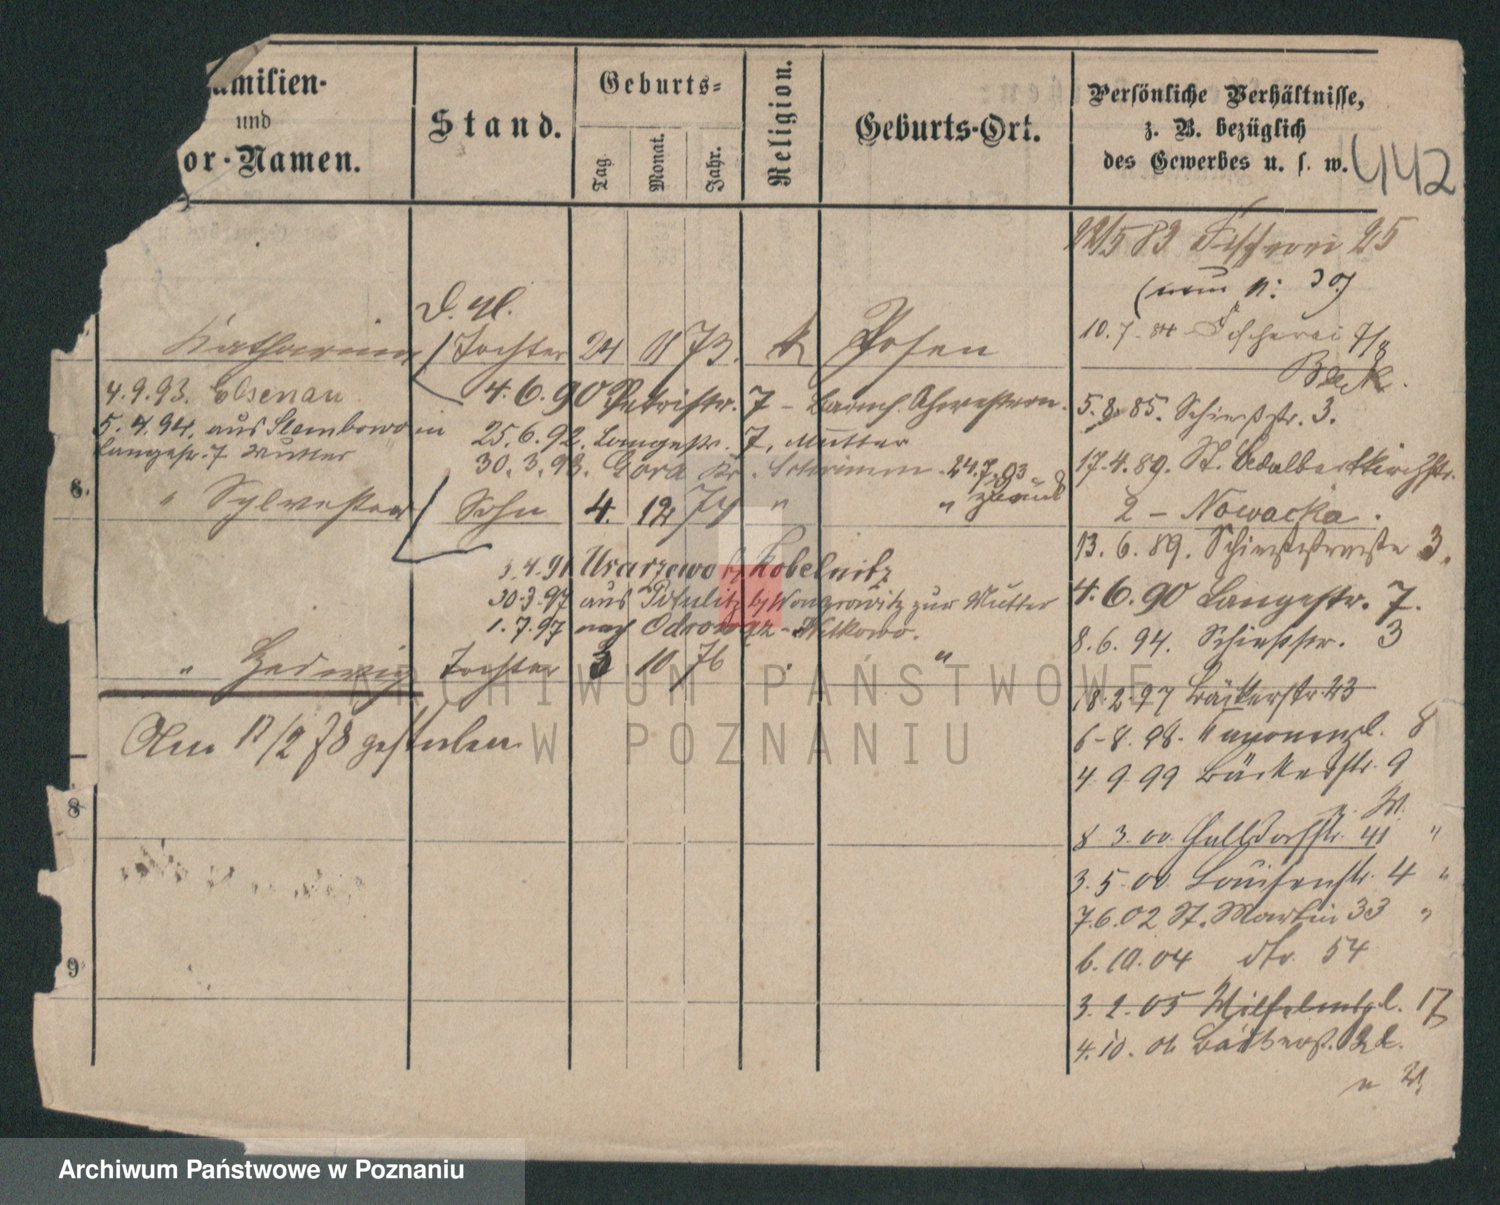 amilien-
und
or-Namen.
Stand.
Geburts-
Tag.
Monat.
Jahr.
Religion.
Geburts-Ort.
Persönliche Verhältnisse,
z. B. bezüglich
des Gewerbes u. s. w.
442
22/5 83 Fischerei 25
10. 7. 84 Fischerei 7/8
Beck.
Katharina Tochter 24 11 73. k Posen
4. 9. 93. Elsenau
4. 6. 90 Petristr. 7 -
5. 8. 85. Schießstr. 3.
5. 4. 94. aus Slembowo
25. 6. 92. Langestr. 7, Mutter
Langestr. 7 Mutter
30. 3. 93. Gora Kr. Schrimm. 24.7.93
zurück
17. 4. 89. St. Adalbertkirchstr.
2 - Nowacka.
6.
" Sylvester Sohn 4. 12 74 " "
13. 6. 89. Schießstraße 3.
3. 4. 91 Uzarzewo b/ Kobelnitz
30. 3. 97 aus Potulitz b/ Wongrowitz zur Mutter
1. 7. 97 nach Odrowąz - Witkowo.
4. 6. 90 Langestr. 7.
8. 6. 94. Schießstr. 3
" Hedwig Tochter 3 10 76 "
18. 2. 97 Bäckerstr 23
Am 17/2 78 gestorben
6. 8. 98. 8
4. 9. 99 Bäckerstr. 9
8
8 3. 00. 41 "
3. 5. 00 Louisenstr. 4 "
7. 6. 02 St. Martin 33 "
9
6. 10. 04 dto. 54
3. 2. 05 Wilhelmspl. 17
4. 10. 06 Bäckerstr.
ARCHIWUM PAŃSTWOWE
W POZNANIU
Archiwum Państwowe w Poznaniu